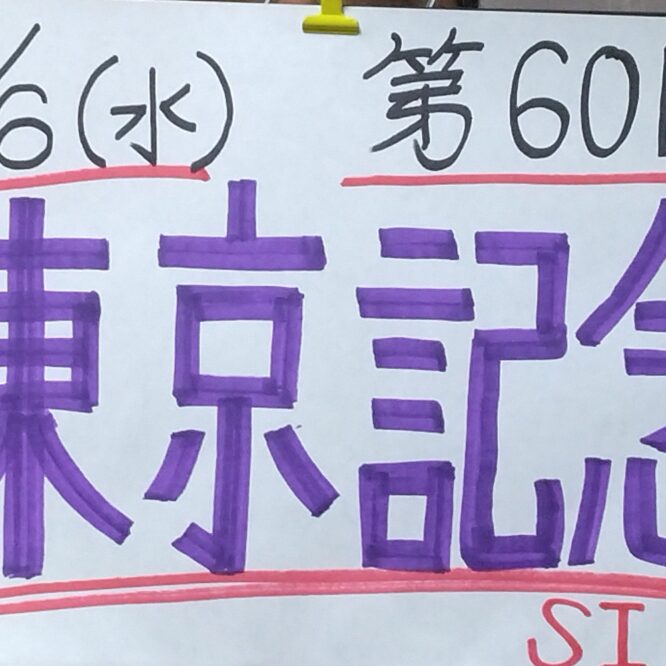 /6(水) 第60回
東京記念
SI